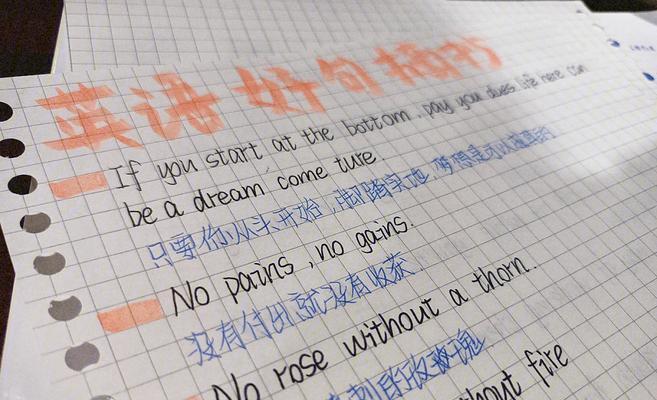 英语好句摘抄
If you start at the bottom, pay you dues, life here can
be a dream come ture.
只要你从头开始，脚踏实地，梦想是可以
No pains, no gains.
没有付出就没有收获
No rose without a thorn.
刺的玫瑰
without fire